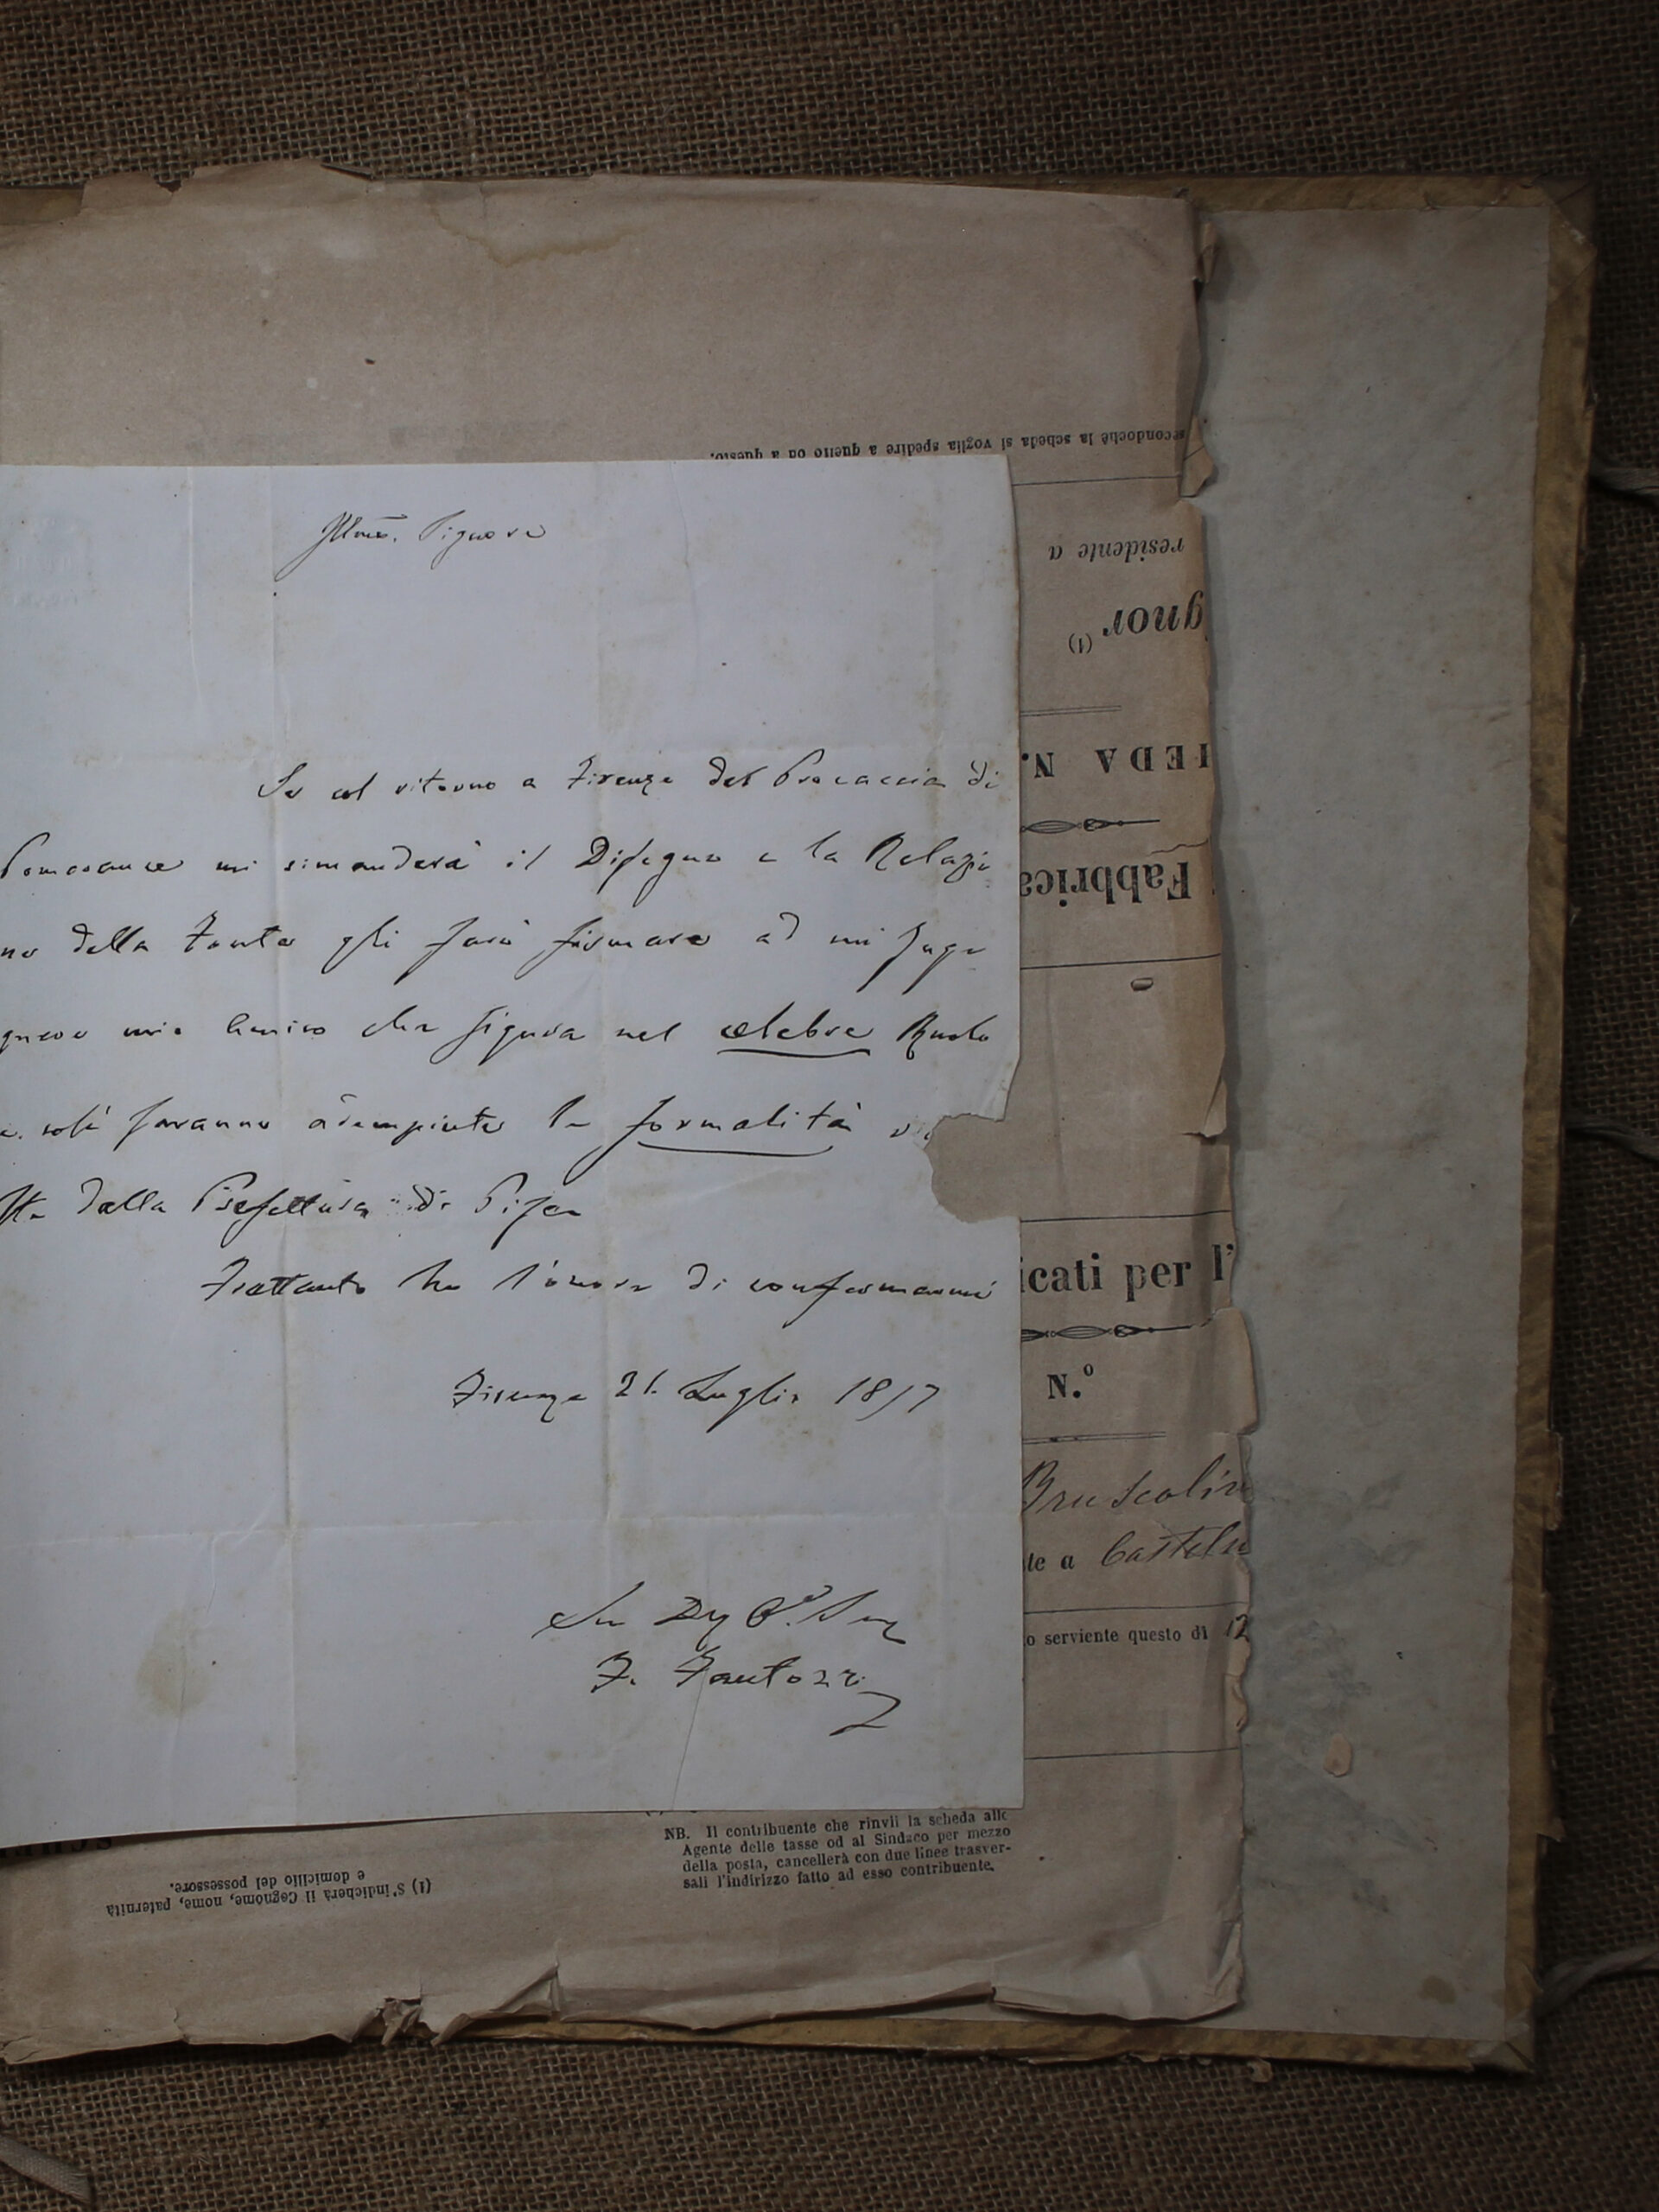 secondochè la scheda si voglia spedire a quello od a questo.
residente a
gnor (1)
EDA N.
Fabbrica
Illmo. Signore
Se col ritorno a Firenze del Procaccia di
Pomarance mi rimanderà il Disegno e la Relazio
ne della Fonte gli farò firmare ad un Inge
gnere mio Amico che figura nel celebre Ruolo
e così saranno adempiute le formalità
della Prefettura di Pisa
Frattanto ho l'onore di confermarmi
Firenze 21. Luglio 1857
Suo
F. Fantozzi
icati per l'
N.º
Bruscolin
te a Casteln
o serviente questo dì 12
NB. Il contribuente che rinvii la scheda alle
Agente delle tasse od al Sindaco per mezzo
della posta, cancellerà con due linee trasver-
sali l'indirizzo fatto ad esso contribuente.
(1) S'indicherà il Cognome, nome, paternità
e domicilio del possessore.